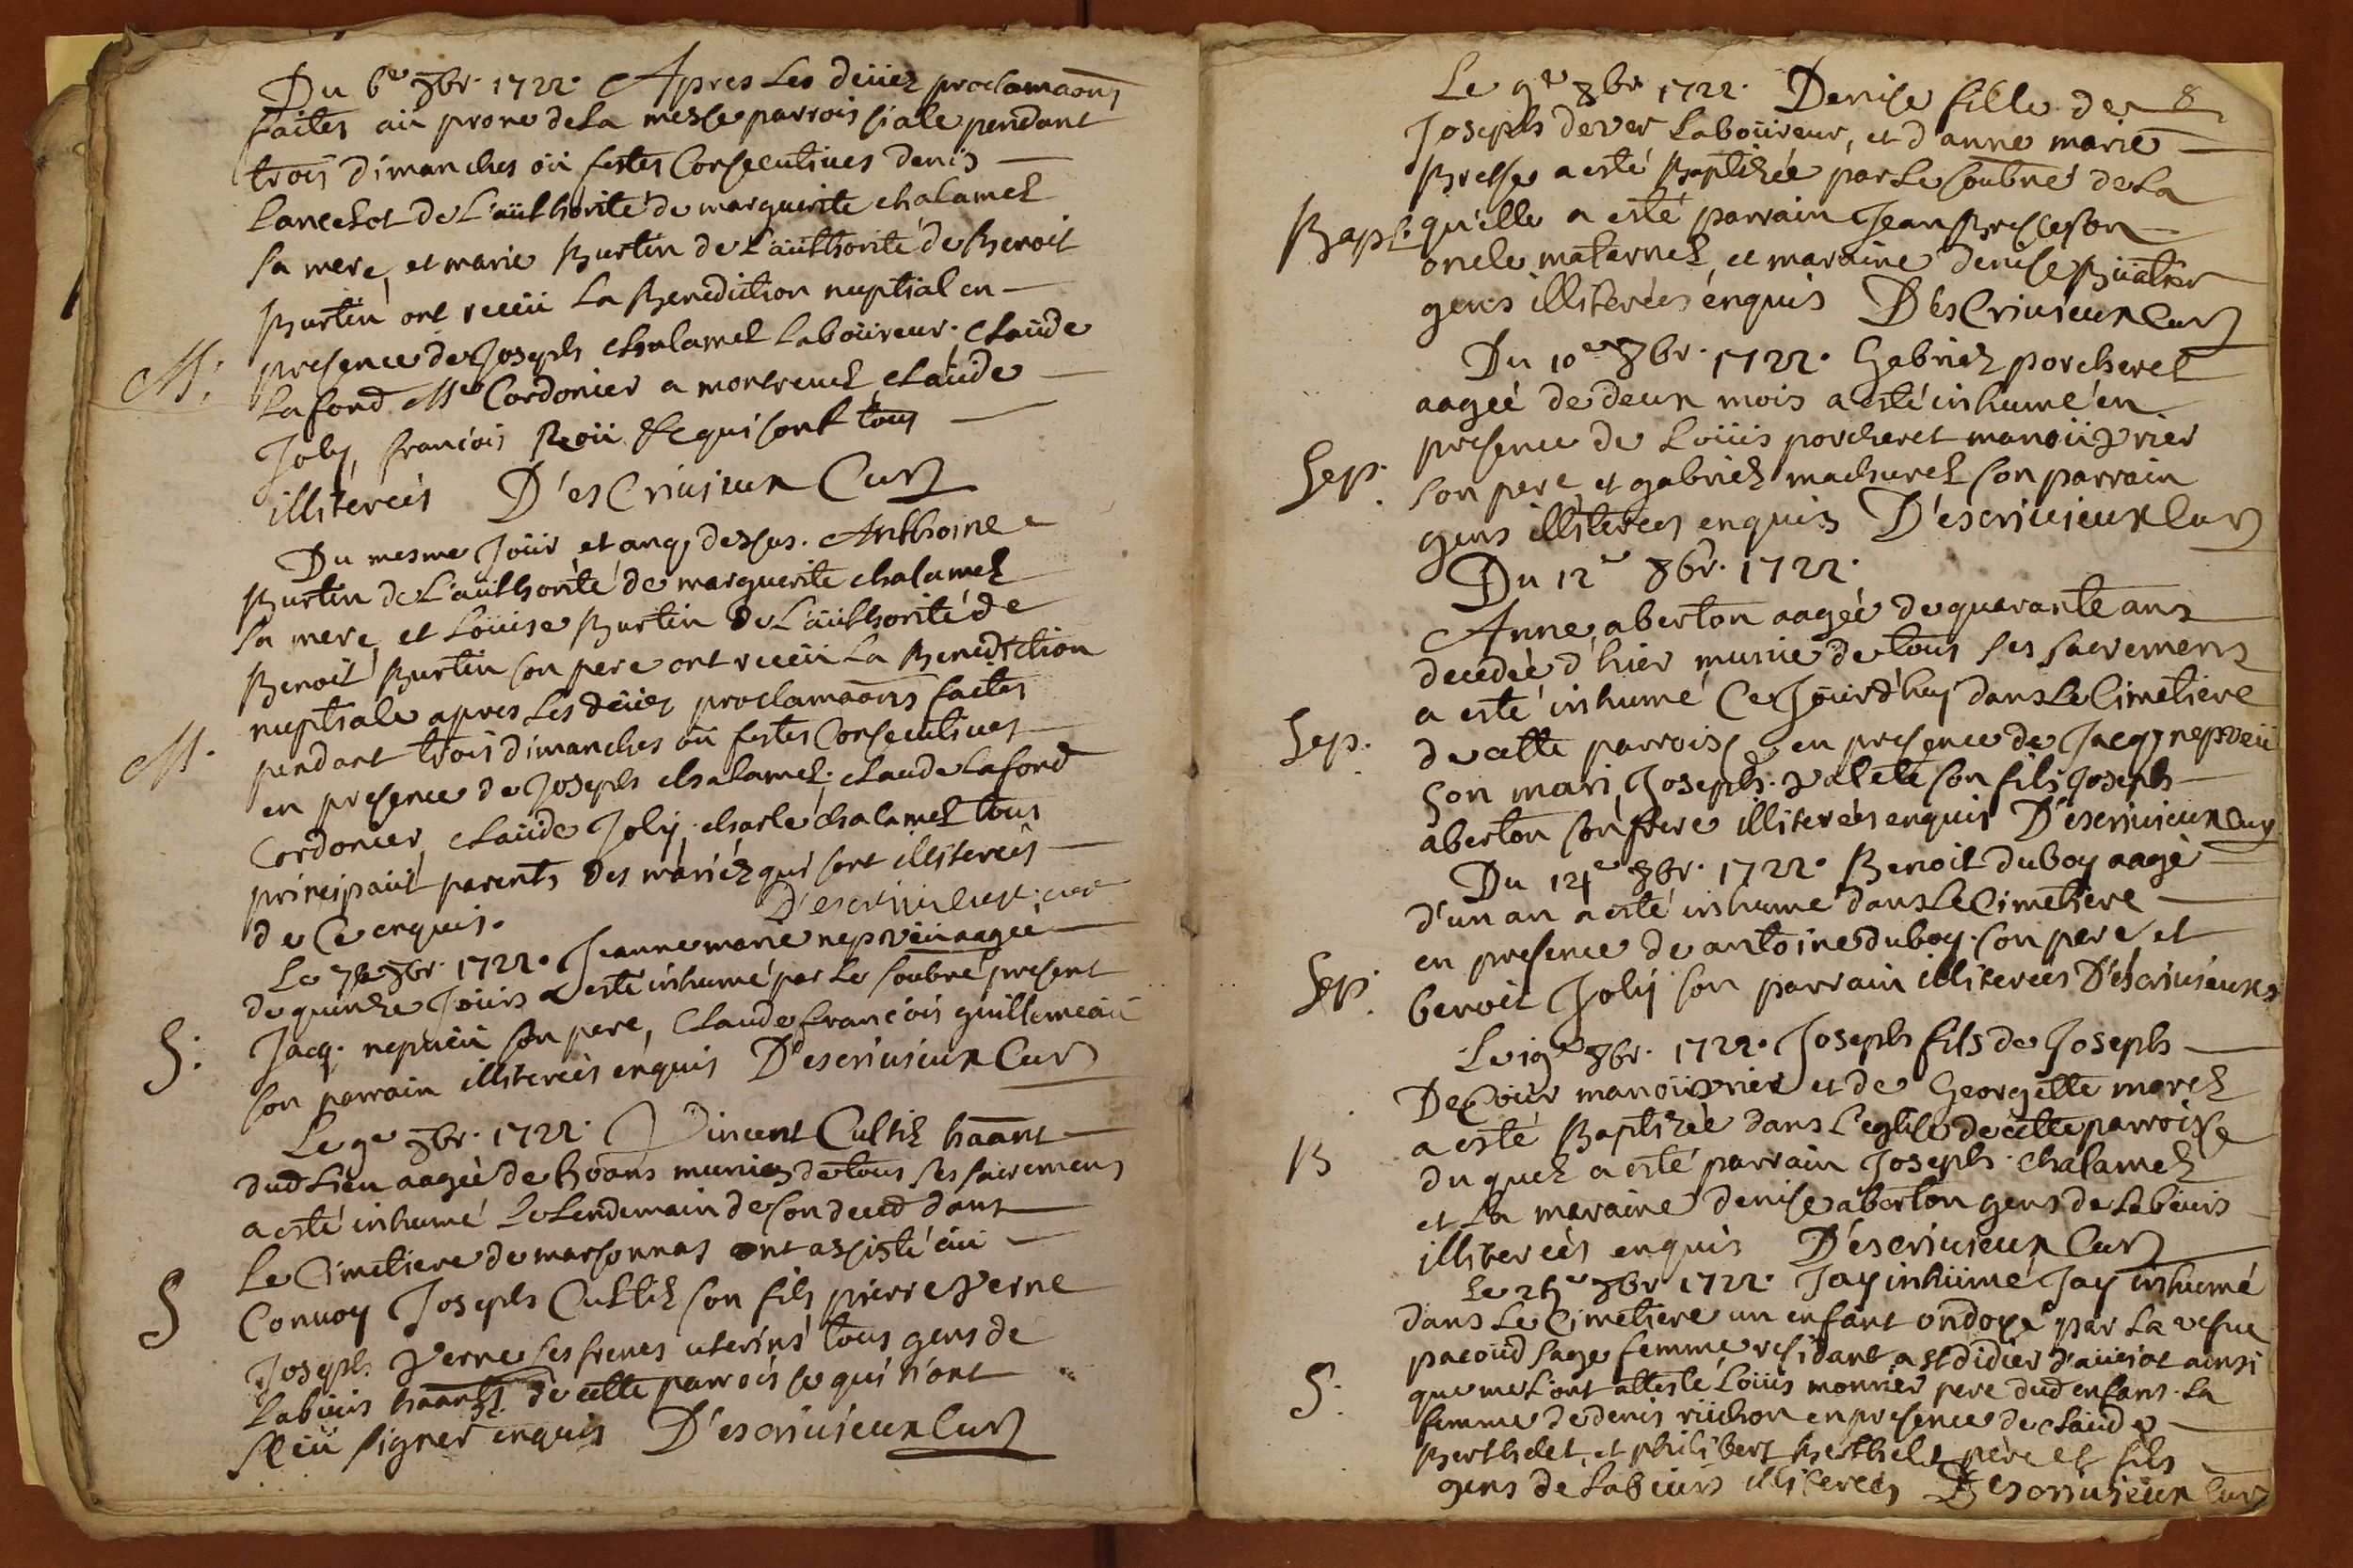 Du 6e 8br. 1722. Apres Les deües proclamaons
faites aü prone de La messe parroissiale pendant
trois dimanches oü festes Consecutives denis
Lancelot de L'aüthorité de marguerite chalamel
sa mere, et marie Burtin de L'aüthorité de Benoit
Burtin ont receü La Benediction nuptial en
M. presence de Joseph chalamel Laboüreur. Claüde
Lafond Me Cordonier a montreuel, Claüde
Joly, francois Roü & qui sont tous
illiterées D'esCriuieux Curé
Du mesme Joür et anq dessus. Anthoine
Burtin de L'aüthorité de marguerite chalamel
sa mere, et Loüise Burtin de L'aüthorité de
Benoit Burtin son pere ont receü La Benediction
nuptiale apres Les deües proclamaons faites
M. pendant trois dimanches oü festes Consecutives
en presence de Joseph chalamel. Claude Lafond
Cordonier, Claüde Joly. charle chalamel tous
principaüt parents des mariéz qui sont illiterées
de Ce enquis. D'escriuieux curé
Le 7e 8br. 1722. Jeanne marie nepveü aageé
de quinze Joürs a esté inhumé par Le soubné present
S. Jacq. nepueü son pere, Claude francois guillemeaü
son parrain illiterées enquis D'escriuieux Curé
Le 9e 8br. 1722. Vincent Cultil haant
dud Lieu aageé de 60 ans munies de tous ses sacremens
a esté inhumé Le Lendemain de son deced dans
Le Cimetiere de marsonnas ont assisté aü
S Convoy Joseph Cultil son fils, pierre Verne
Joseph Verne ses freres uterins tous gens de
Labeurs haants de cette parroisse qui n'ont
sceü signer enquis D'escriuieux Curé
8
Le 9e 8br 1722. Denise fille de
Joseph dever Laboüreur, et d'anne marie
Bresse a esté Baptizée par Le soubné de La
Bapt. qu'elle a esté parrain Jean Bresse son
oncle maternel, et maraine denise Büatier
gens illiterées enquis D'esCriuieux Curé
Du 10e 8br. 1722. Gabriel porcheret
aageé de deux mois a esté inhumé en
presence de Loüis porcheret manoüvrier
Sep. son pere, et gabriel machurel son parrain
gens illiterees enquis D'escriuieux Curé
Du 12e 8br. 1722.
Anne aberton aageé de quarante ans
decedée d'hier munie de tous ses sacremens
a esté inhumé Ce Joürd'huy dans Le Cimetiere
Sep. de cette parroisse en presence de Jacq nepveü
son mari, Joseph valete son fils Joseph
aberton son frere illiterées enquis D'escriuieux Curé
Du 14e 8br. 1722. Benoit duboy aagé
d'un an a esté inhumé dans Le Cimetiere
en presence de antoine duboy son pere, et
Sep. benoit Joly son parrain illiterées D'escriuieux
Le 19e 8br. 1722. Joseph fils de Joseph
DeCoür manoüvrier et de Georgette morel
a esté Baptizée dans L'eglise de cette parroisse
B du quel a esté parrain Joseph chalamel
et La maraine denise aberton gens de Labeurs
illiterées enquis D'escriuieux Curé
Le 25e 8br 1722. Jay inhümé Jay inhumé
dans Le Cimetiere un enfant ondoyé par La vefue
pacoüd sage femme residant a st didier d'aüssiat ainsi
S. que me L'ont attesté Loüis monnier pere dud enfans. La
femme de denis rüchon en presence de Claüde
Berthelet, et philibert Berthelet pere et fils
gens de Labeurs illiterées D'escriuieux Curé